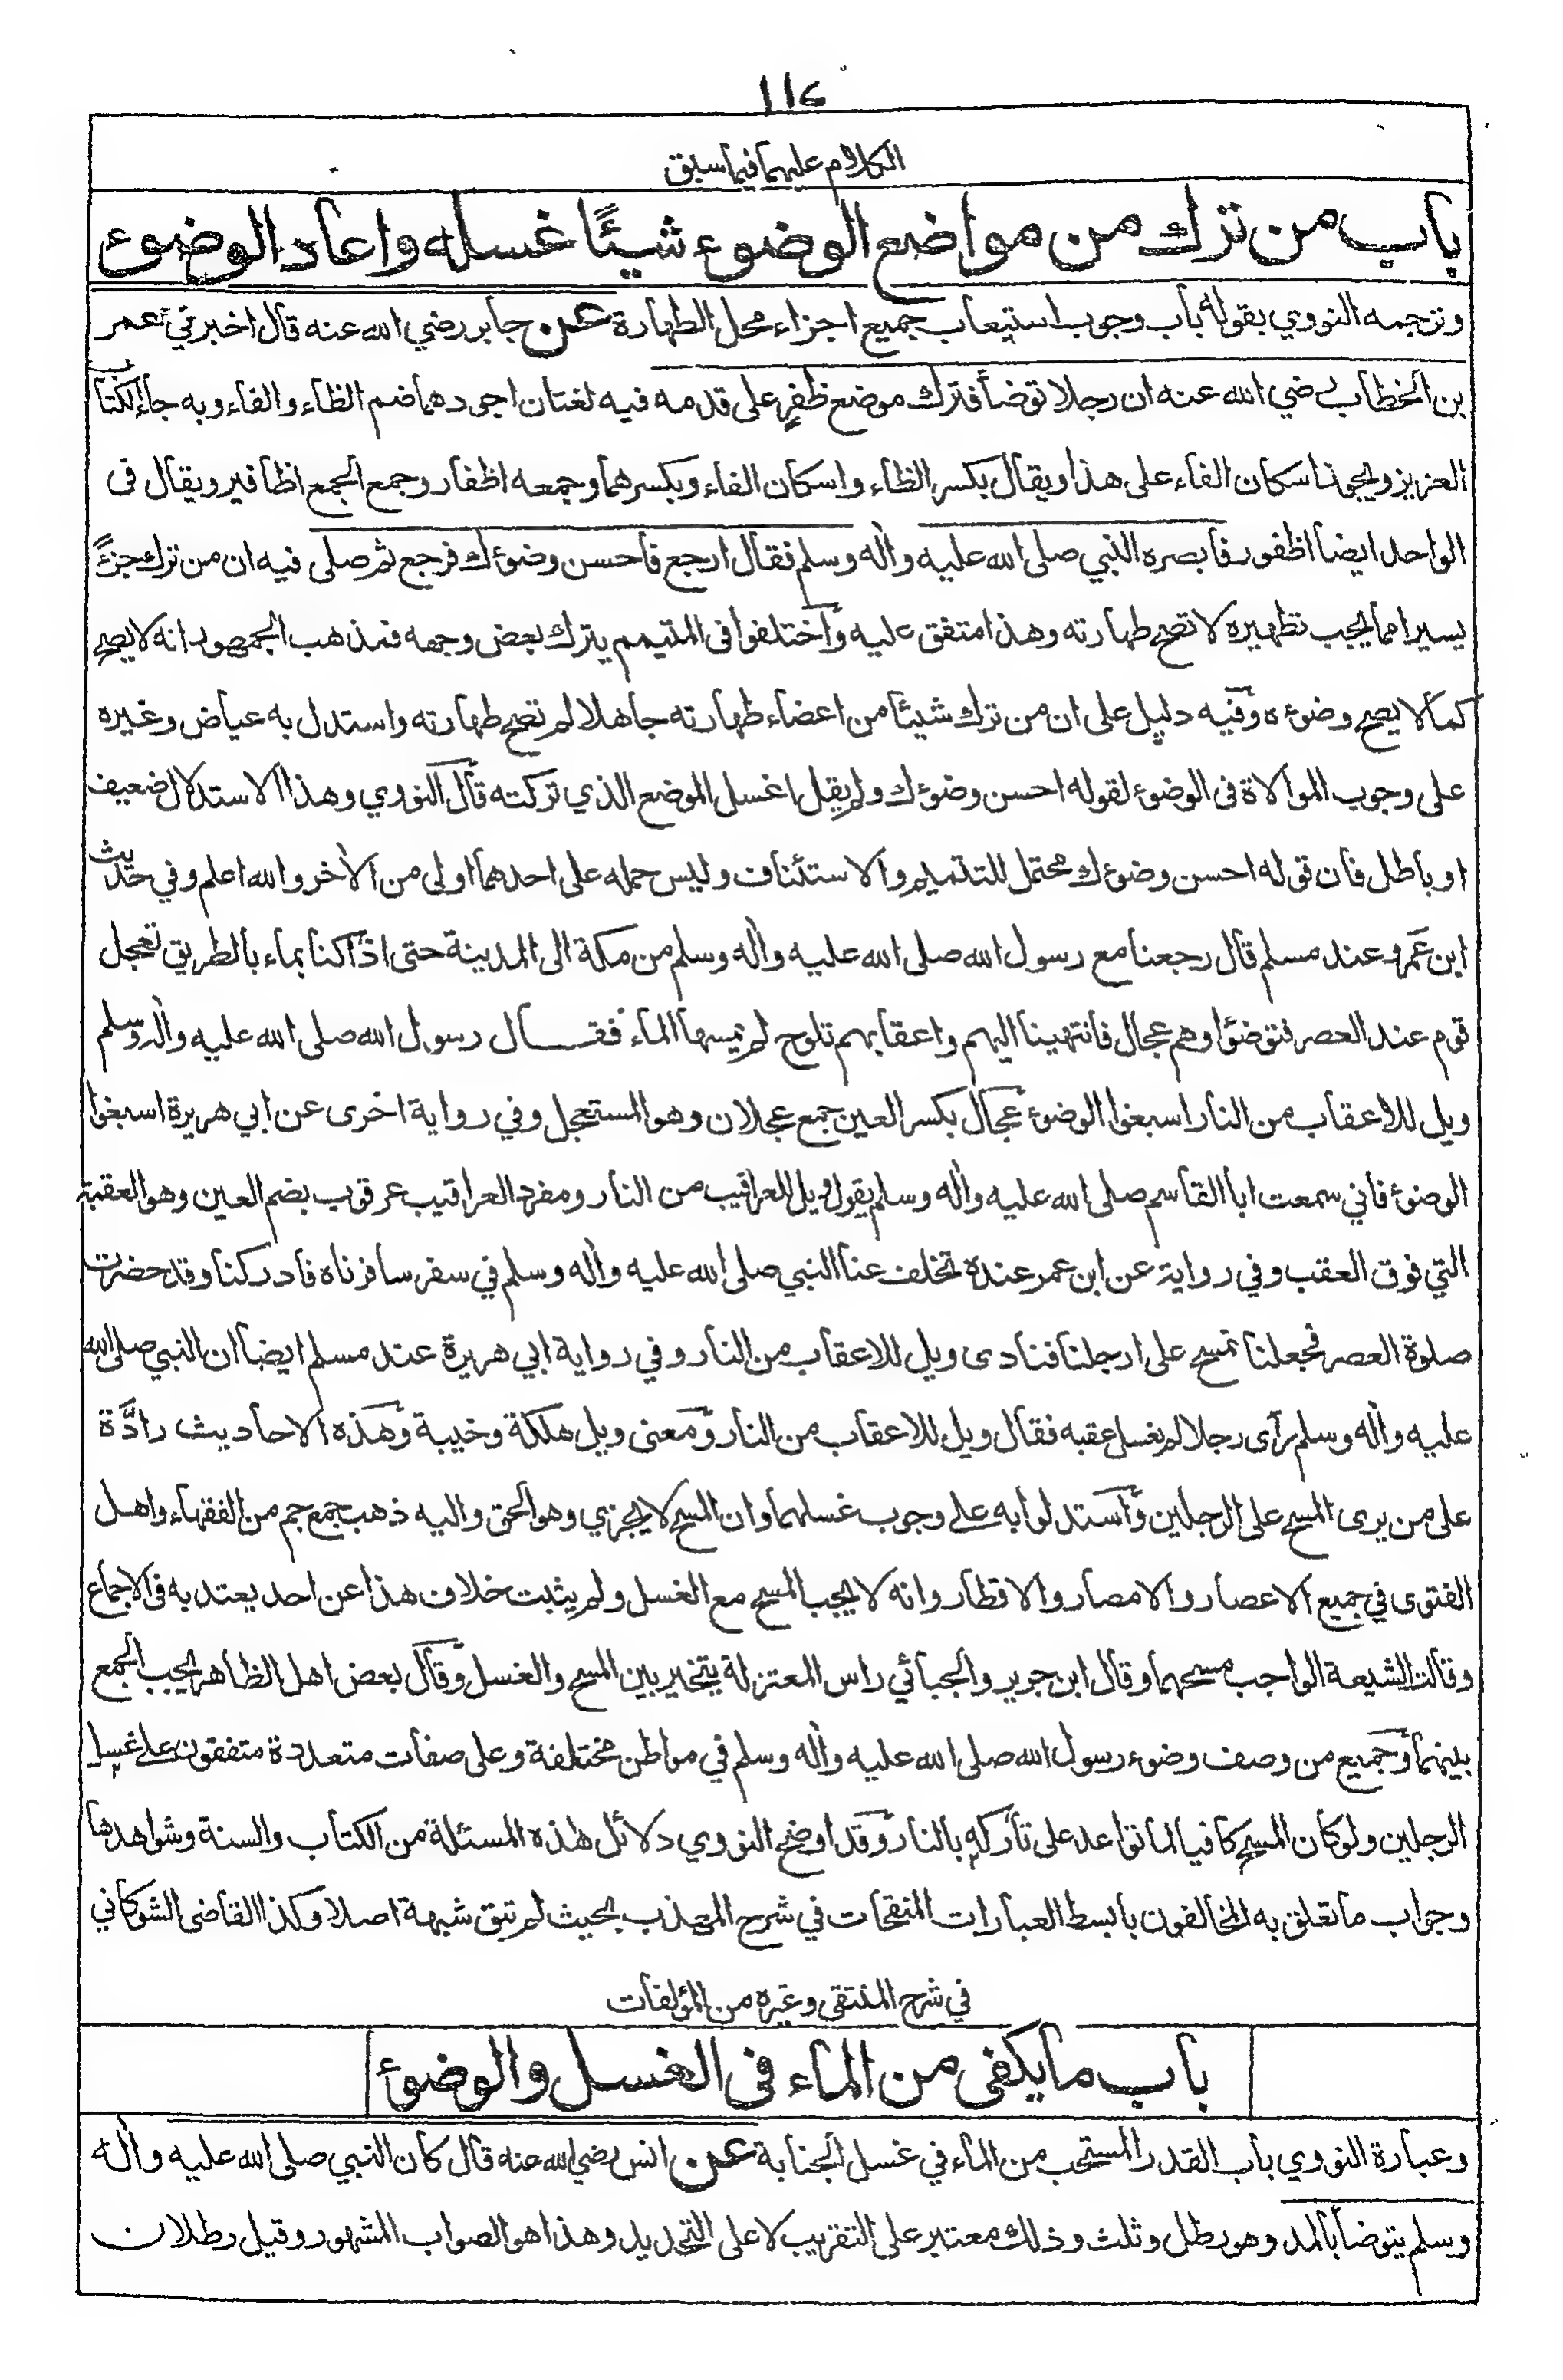 ١١٤
الكلام عليهما فيما سبق
باب من ترك من مواضع الوضوء شيئًا غسله واعاد الوضوء
وترجمه النووي بقوله باب وجوب استيعاب جميع اجزاء محل الطهارة عن جابر رضي الله عنه قال اخبرني عمر
بن الخطاب رضي الله عنه ان رجلا توضأ فترك موضع ظفر على قدمه فيه لغتان اجودهما ضم الظاء والفاء وبه جاء الكتاب
العزيز ويجوز اسكان الفاء على هذا ويقال بكسر الظاء واسكان الفاء وبكسرهما وجمعه اظفار وجمع الجمع اظافير ويقال فى
الواحد ايضا اظفور فابصره النبي صلى الله عليه واله وسلم فقال ارجع فاحسن وضوءك فرجع ثم صلى فيه ان من ترك جزءً
يسيرا مما يجب تطهيره لا تصح طهارته وهذا متفق عليه واختلفوا فى المتيمم يترك بعض وجهه فمذهب الجمهور انه لا يصح
كما لا يصح وضوءه وفيه دليل على ان من ترك شيئًا من اعضاء طهارته جاهلا لم تصح طهارته واستدل به عياض وغيره
على وجوب الموالاة فى الوضوء لقوله احسن وضوءك ولم يقل اغسل الموضع الذي تركته قال النووي وهذا الاستدلال ضعيف
او باطل فان قوله احسن وضوءك محتمل للتتميم والاستئناف وليس حمله على احدهما اولى من الاخر والله اعلم وفي حديث
ابن عمرو عند مسلم قال رجعنا مع رسول الله صلى الله عليه واله وسلم من مكة الى المدينة حتى اذا كنا بماء بالطريق تعجل
قوم عند العصر فتوضئوا وهم عجال فانتهينا اليهم واعقابهم تلوح لم يمسها الماء فقـــال رسول الله صلى الله عليه واله وسلم
ويل للاعقاب من النار اسبغوا الوضوء عجال بكسر العين جمع عجلان وهو المستعجل وفي رواية اخرى عن ابي هريرة اسبغوا
الوضوء فاني سمعت ابا القاسم صلى الله عليه واله وسلم يقول ويل للعراقيب من النار ومفرد العراقيب عرقوب بضم العين وهو العقبة
التي فوق العقب وفي رواية عن ابن عمر عنده تخلف عنا النبي صلى الله عليه واله وسلم في سفر سافرناه فادركنا وقد حضرت
صلوة العصر فجعلنا نمسح على ارجلنا فنادى ويل للاعقاب من النار وفي رواية ابي هريرة عند مسلم ايضا ان النبي صلى الله
عليه واله وسلم رآى رجلا لم يغسل عقبه فقال ويل للاعقاب من النار ومعنى ويل هلكة وخيبة وهذه الاحاديث رادَّة
على من يرى المسح على الرجلين واستدلوا به على وجوب غسلهما وان المسح لا يجزي وهو الحق واليه ذهب جمع جم من الفقهاء واهل
الفتوى في جميع الاعصار والامصار والاقطار وانه لا يجب المسح مع الغسل ولم يثبت خلاف هذا عن احد يعتد به فى الاجماع
وقالت الشيعة الواجب مسحهما وقال ابن جرير والجبائي راس المعتزلة يتخير بين المسح والغسل وقال بعض اهل الظاهر يجب الجمع
بينهما وجميع من وصف وضوء رسول الله صلى الله عليه واله وسلم في مواطن مختلفة وعلى صفات متعددة متفقون على غسل
الرجلين ولو كان المسح كافيا لما تواعد على تاركه بالنار وقد اوضح النووي دلائل هذه المسئلة من الكتاب والسنة وشواهدها
وجواب ما تعلق به المخالفون بابسط العبارات المنقحات في شرح المهذب بحيث لم تبق شبهة اصلا وكذا القاضى الشوكاني
في شرح المنتقى وغيره من المؤلفات
باب ما يكفى من الماء فى الغسل والوضوء
وعبارة النووي باب القدر المستحب من الماء في غسل الجنابة عن انس رضي الله عنه قال كان النبي صلى الله عليه واله
وسلم يتوضأ بالمد وهو رطل وثلث وذلك معتبر على التقريب لا على التحديد وهذا هو الصواب المشهور وقيل رطلان